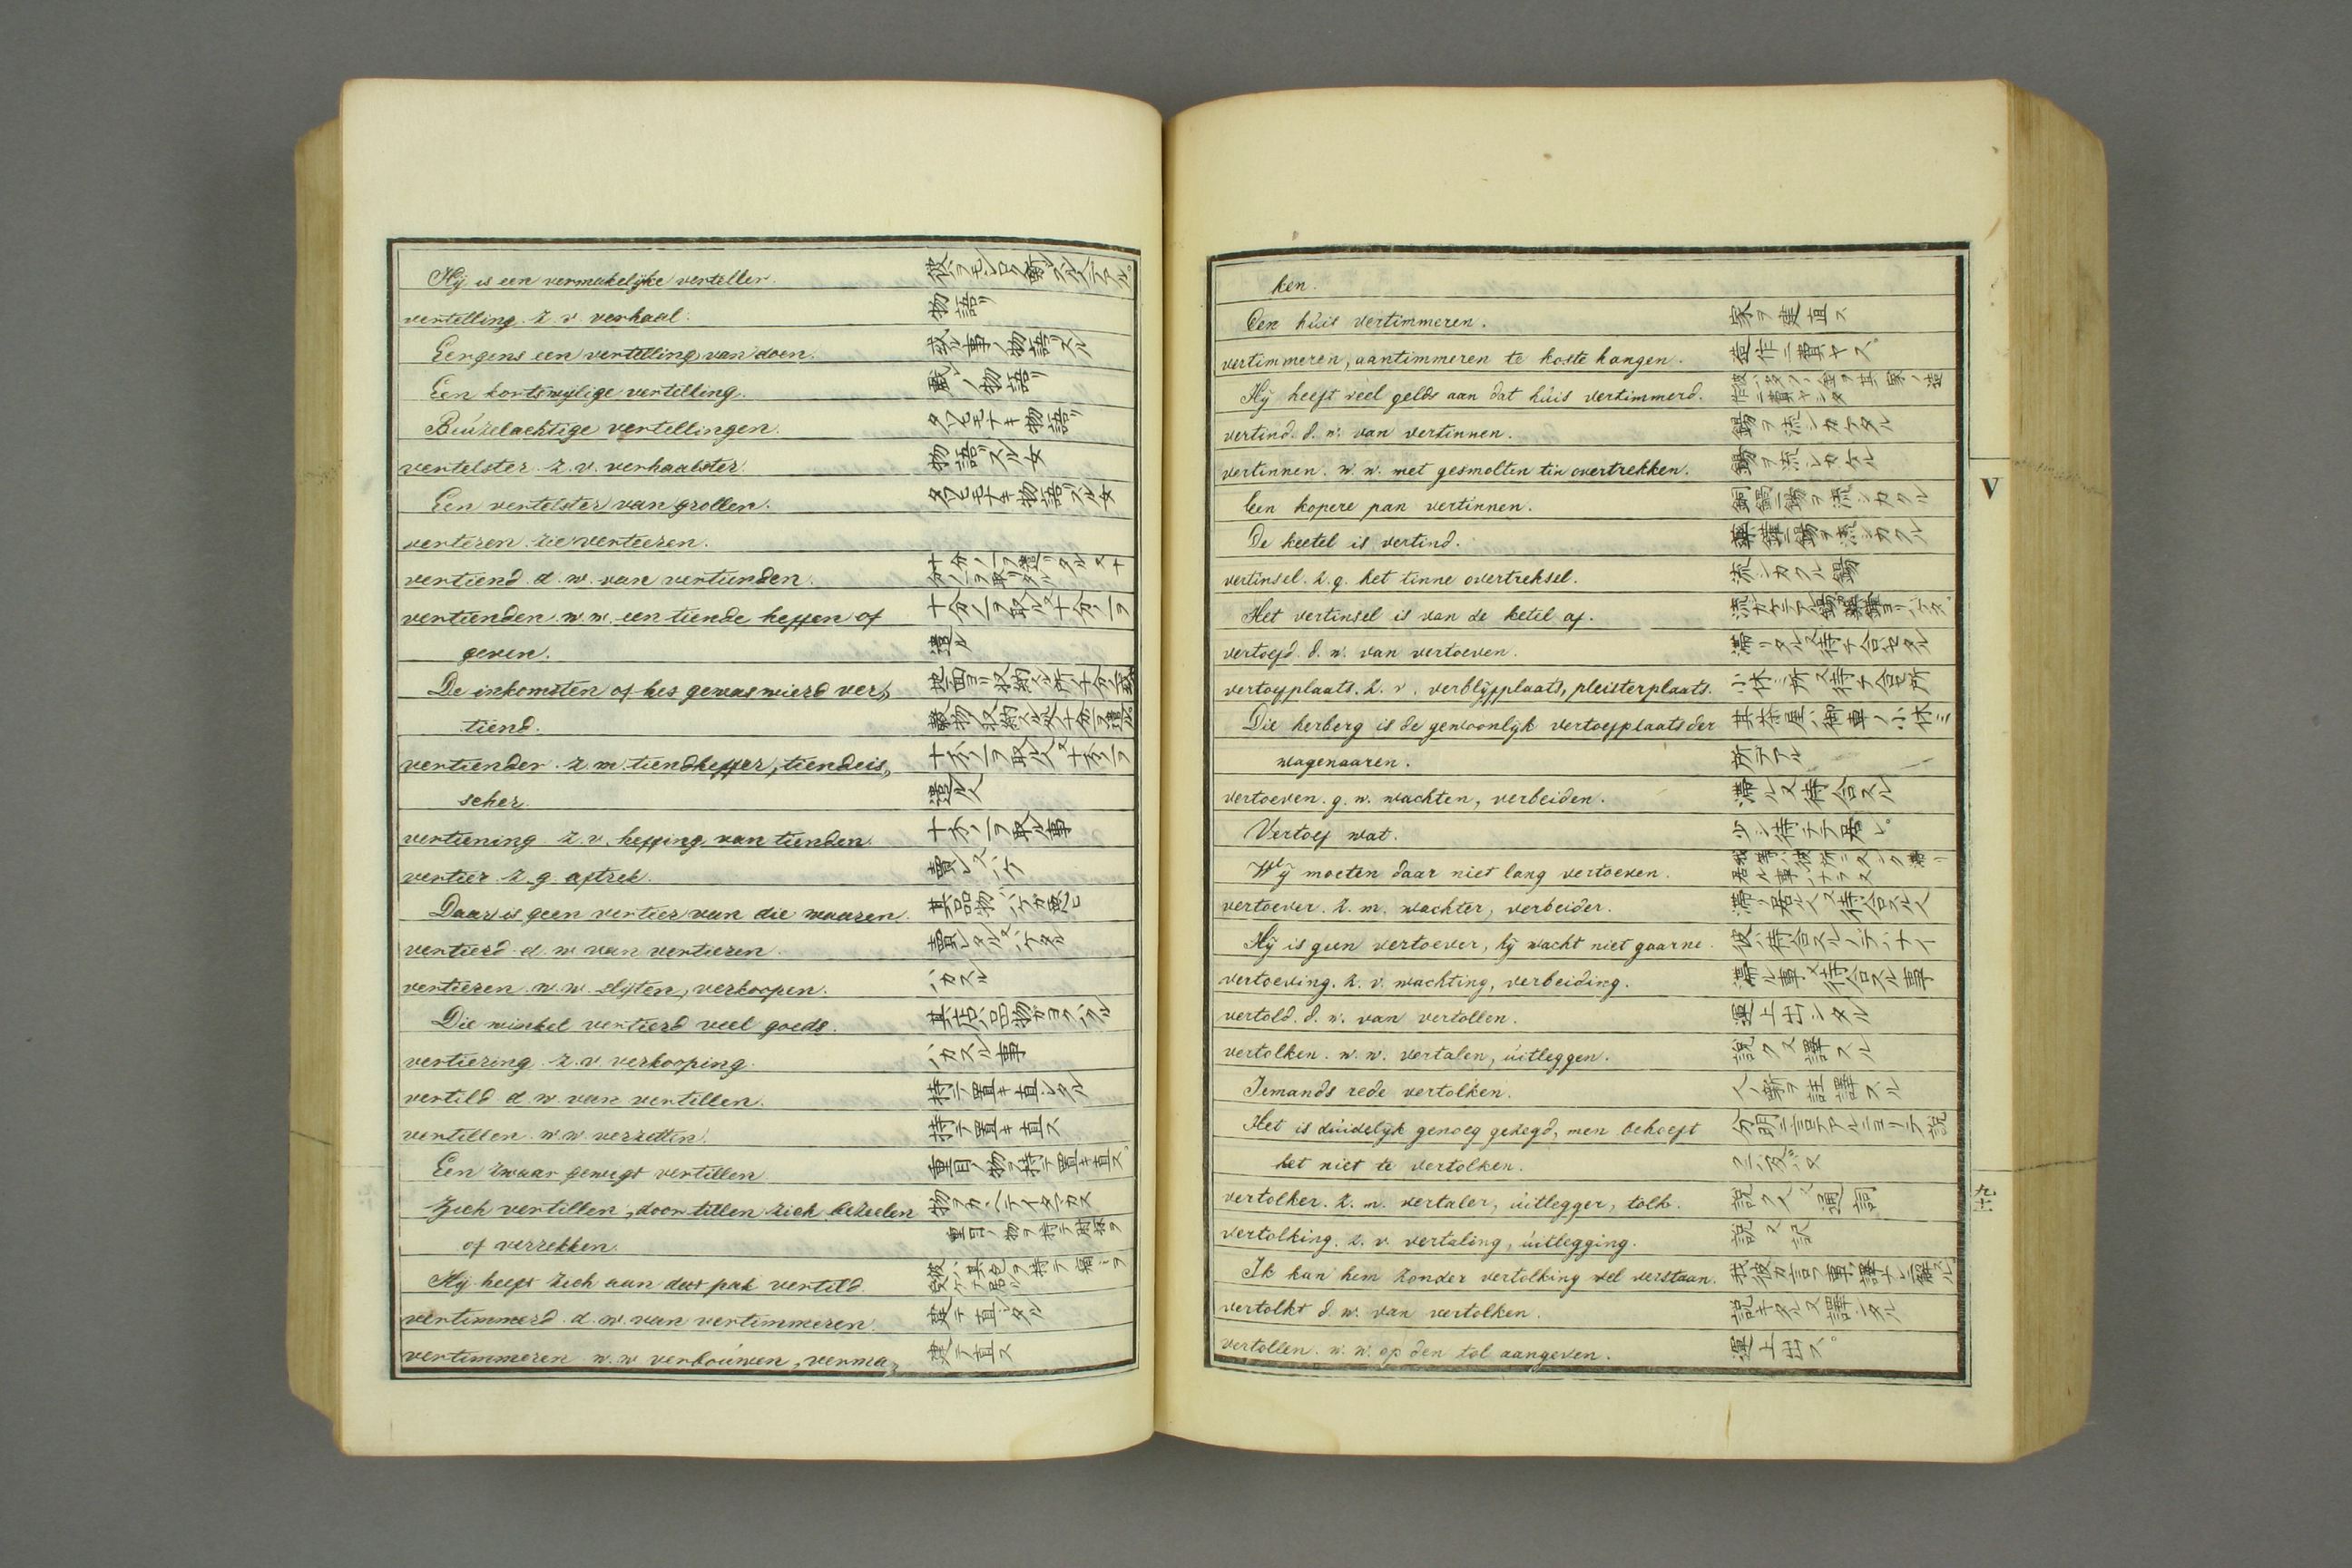 Hij is een vermakelijke verteller. 彼ハヲモシロク噺シスル人デアル。
vertelling. z. v. verhaal. 物語リ
Eergens een vertelling van doen. 或ル事ノ物語リスル
Een kortswylige vertelling. 戯レノ物語リ
Beúzelachtige vertellingen. タワヒモナキ物語リ
vertelster. z. v. verhaalster. 物語リスル女
Een vertelster van grollen. タワヒモナキ物語リスル女
verteren. zie verteeren.
vertiend. d. w. van vertienden.
vertienden. w. w. een tiende heffen of 十分ノ一ヲ取ル又十分ノ一ヲ
geven. 遣ル
De inkomsten of hes gewas wierd ver„
tiend.
vertiender. z. m. tiendheffer, tiendeis„ 十分ノ一ヲ取ル人又十分ノ一ヲ
scher. 遣ル人
vertiening z. v. heffing van tienden 十分ノ一ヲ取ル事
vertier. z. g. aftrek. 賣レ又ハケ
Daar is geen vertier van die waaren. 其品物ハハケガ悪ヒ
vertierd. d. w. van vertieren. 賣レタル又ハケタル
vertieren. w. w. slijten, verkoopen. ハカスル
Die winkel vertierd veel goeds. 其店ハ品物ガヨクハケル
vertiering. z. v. verkooping. ハカスル事
vertild d. w. van vertillen. 持テ置キ直シタル
vertillen. w. w. verzetten. 持テ置キ直ス
Een zwaar gewigt vertillen 重目ノ物ヲ持テ置キ直ス。
Zich vertillen, door tillen zich bezeelen
of verrekken.
Hij heeft zich aan dat pak vertild.
vertimmerd. d. w. van vertimmeren. 建テ直シタル
vertimmeren w. w. verboúwen, verma„ 建テ直ス
ken.
Een húis vertimmeren. 家ヲ建直ス
vertimmeren, aantimmeren te koste hangen. 造作ニ費ヤス。
Hij heeft veel gelds aan dat húis vertimmerd. 彼ハ多クノ金ヲ其家ノ造作ニ費ヤシタ
vertind. d. w. van vertinnen. 錫ヲ流シカケタル
vertinnen. w. w. met gesmolten tin overtrekken. 錫ヲ流シカケル
Een kopere pan vertinnen. 銅鍋ニ錫ヲ流シカケル
De keetel is vertind.
vertinsel. z. g. het tinne overtreksel. 流シカケル錫
Het vertinsel is van de ketel af.
vertoefd. d. w. van vertoeven. 滞リタル又待チ合セタル
vertoefplaats. z. v. verblijfplaats, pleisterplaats. 小休ミ所又待チ合セ所
Die herberg is de gewoonlijk vertoefplaats der 其茶屋ハ御車ノ小休ミ
wagenaaren. 所デアル
vertoeven. g. w. wachten, verbeiden. 滞ル又待合スル
Vertoef wat. 少シ待チテ居レ。
Wij moeten daar niet lang vertoeven.
vertoever. z. m. wachter, verbeider. 滞リ居ル人又待合スル人
Hij is geen vertoever, hij wacht niet gaarne. 彼ハ待合スル人デハナイ
vertoeving. z. v. wachting, verbeiding. 滞ル事又待合スル事
vertold. d. w. van vertollen. 運上出シタル
vertolken. w. w. vertalen, úitleggen. 説ク又譯スル
Iemands rede vertolken. 人ノ噺ヲ註譯スル
Het is dúidelyk genoeg gezegd, men behoeft 分明ニ言テアルニヨリテ説
het niet te vertolken. クニ及バズ
vertolker. z. m. vertaler, úitlegger, tolk. 説ク人又通詞
vertolking. z. v. vertaling, úitlegging. 説又訳
Ik kan hem zonder vertolking wel verstaan.
vertolkt d. w. van vertolken. 説キタル又譯シタル
vertollen. w. w. op den tol aangeven. 運上出ス。
V
九十一